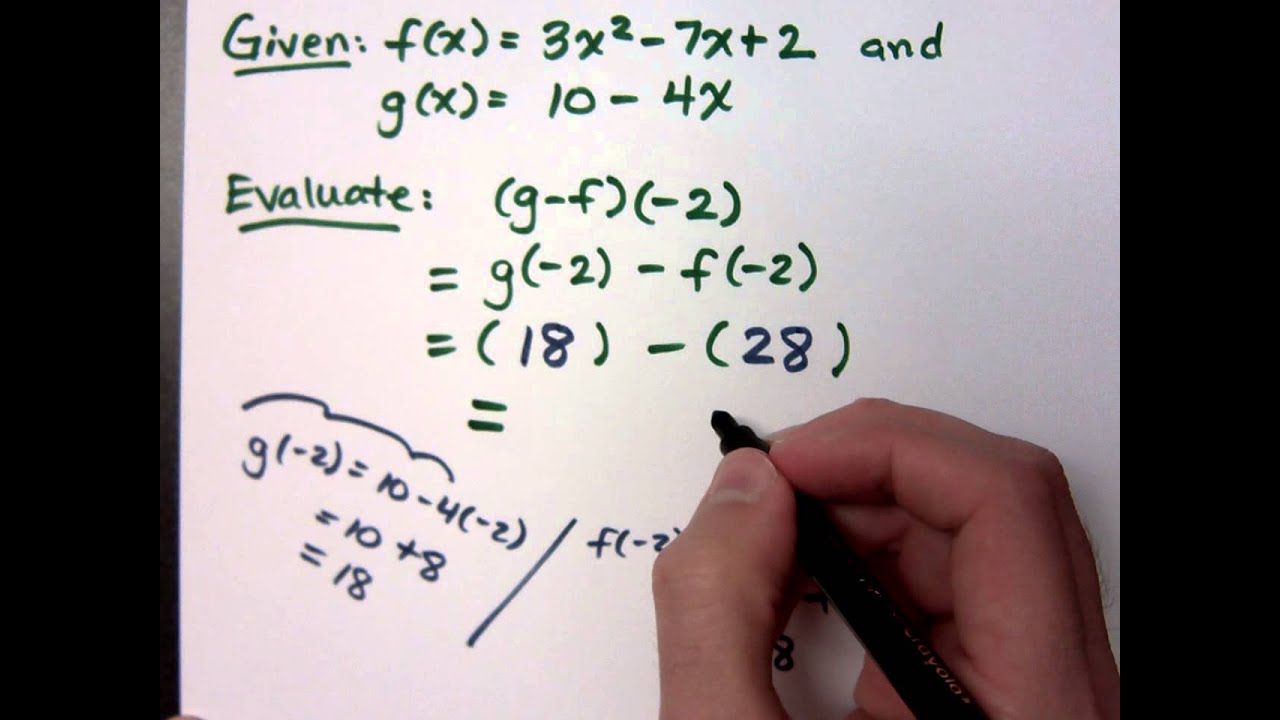 Given: f(x) = 3x² - 7x + 2 and
g(x) = 10 - 4x
Evaluate: (g-f)(-2)
= g(-2) - f(-2)
= (18) - (28)
=
g(-2) = 10 - 4(-2)
= 10 + 8
= 18
f(-2)
8
crayola